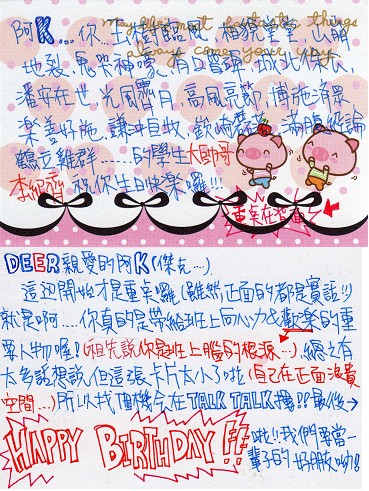 may the most fantastic things
always come your way
阿K...你...玉樹臨風、相貌堂堂、山崩
地裂、鬼哭神嚎、有口皆碑、城北徐公、
潘安在世、光風霽月、高風亮節、博施濟眾、
樂善好施、謙沖自牧、崎磊落、滿腹經論
鶴立雞群......的學生大帥哥
李 齊 祝你生日快樂囉!!!
重桌在背面
DEER親愛的阿K(傑克...)
這边開始才是重桌囉(雖然正面的都是實話!!)
就是啊....你真的是帶給班上向心力&歡樂的重
要人物喔!(祖先說你是班上腦的根源...),總之有
太多話想說,但這張卡片太小了啦(自己在正面浪費
空間...)所以找個機會在TALK TALK !!最後→
HAPPY BIRTHDAY!! 啦!!我們要當一
輩子的好朋友喲!!